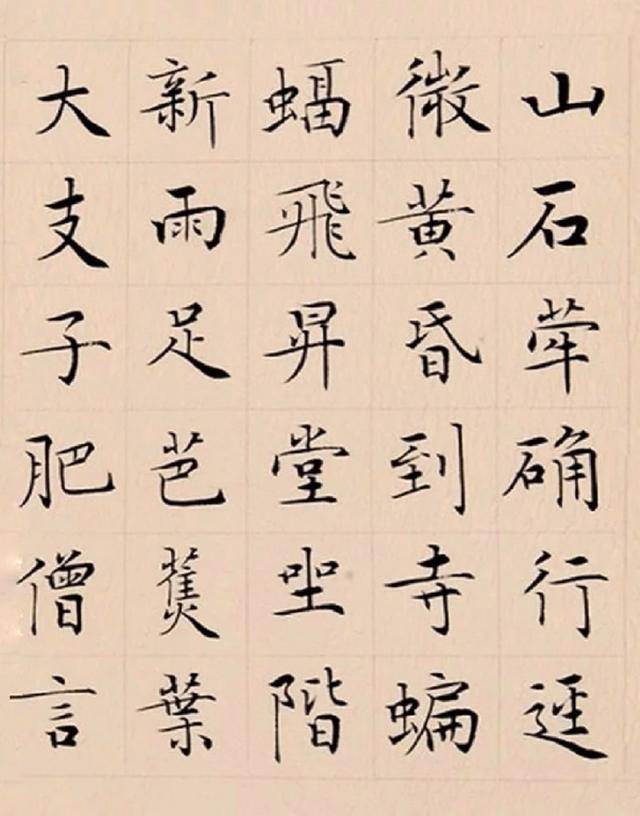 山石犖确行逕
微黃昏到寺蝙
蝠飛昇堂坐階
新雨足芭蕉葉
大支子肥僧言